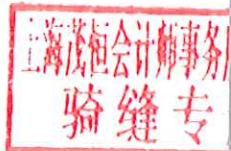 上海茂恒会计师事务
骑缝专